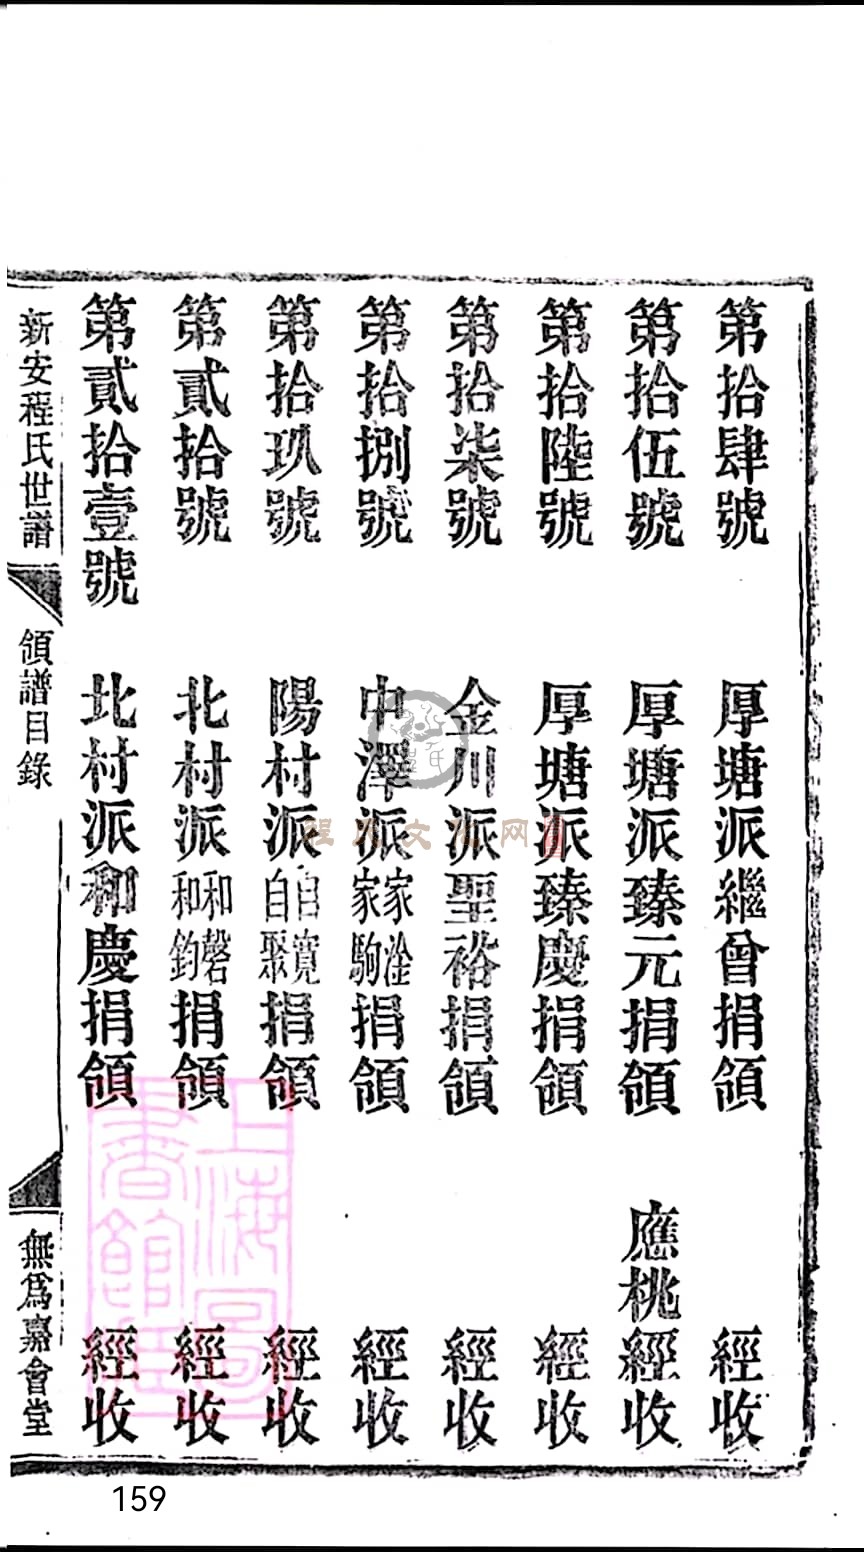 第拾肆號 厚塘派繼曾捐領 經收
第拾伍號 厚塘派臻元捐領 應桃經收
第拾陸號 厚塘派臻慶捐領 經收
第拾柒號 金川派聖裕捐領 經收
第拾捌號 中澤派家淦家駒捐領 經收
第拾玖號 陽村派自寬自聚捐領 經收
第貳拾號 北村派和磬和鈞捐領 經收
第貳拾壹號 北村派和慶捐領 經收
新安程氏世譜 領譜目錄 無爲嘉會堂
程氏文化网
上海圖書館藏
159